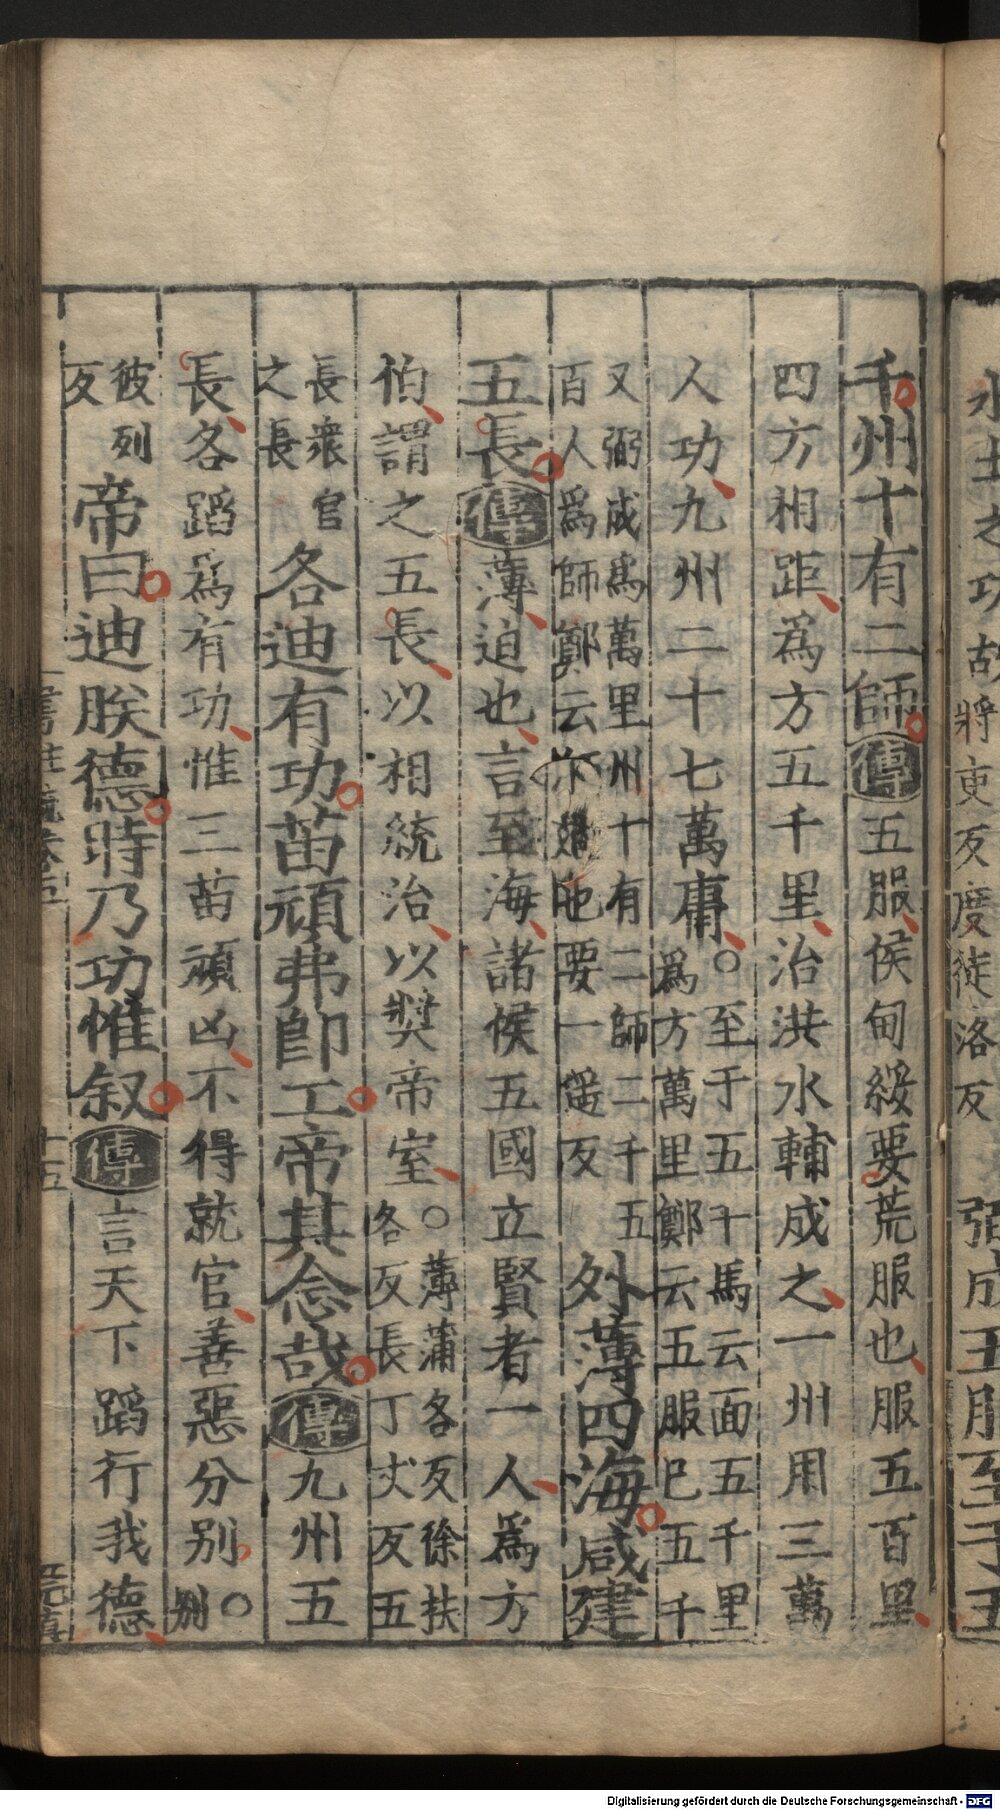 千州十有二師傳五服侯甸綏要荒服也服五百里
四方相距爲方五千里治洪水輔成之一州用三萬
人功九州二十七萬庸○至于五千馬云面五千里
爲方萬里鄭云五服已五千
又弼成爲萬里州十有二師二千五
百人爲師鄭云要一遥反
外薄四海咸建
五長傳薄迫也言至海諸侯五國立賢者一人爲方
伯謂之五長以相統治以奬帝室○薄蒲各反徐扶
各反長丁丈反五
長衆官
之長
各迪有功苗頑弗即工帝其念哉傳九州五
長各蹈爲有功惟三苗頑凶不得就官善惡分别○
别
彼列
反
帝曰迪朕德時乃功惟叙傳言天下蹈行我德
十五
水土之功故
將
吏反度徒洛反
弼成五服至于五
Digitalisierung gefördert durch die Deutsche Forschungsgemeinschaft - DFG